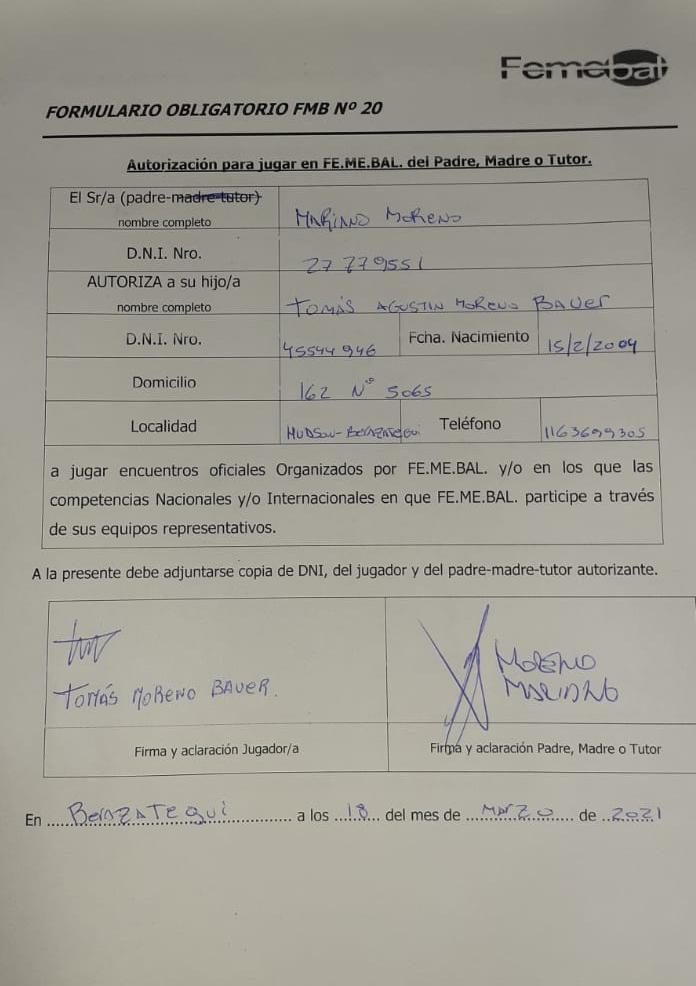 Femebal
FORMULARIO OBLIGATORIO FMB Nº 20
Autorización para jugar en FE.ME.BAL. del Padre, Madre o Tutor.
El Sr/a (padre-madre-tutor)
nombre completo
MARIANO MORENO
D.N.I. Nro.
27 779551
AUTORIZA a su hijo/a
nombre completo
TOMÁS AGUSTIN MORENO BAUER
D.N.I. Nro.
45544 946
Fcha. Nacimiento
15/2/2004
Domicilio
162 Nº 5065
Localidad
HUDSON-BERAZATEGUI
Teléfono
1163699305
a jugar encuentros oficiales Organizados por FE.ME.BAL. y/o en los que las
competencias Nacionales y/o Internacionales en que FE.ME.BAL. participe a través
de sus equipos representativos.
A la presente debe adjuntarse copia de DNI, del jugador y del padre-madre-tutor autorizante.
TOMÁS MORENO BAUER.
MORENO
MARIANO
Firma y aclaración Jugador/a
Firma y aclaración Padre, Madre o Tutor
En BERAZATEGUI a los 18 del mes de MARZO de 2021